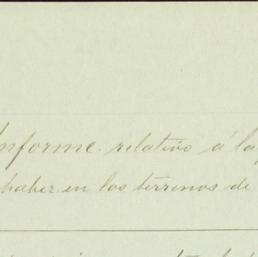 Informe relativo á la
haber en los terrenos de